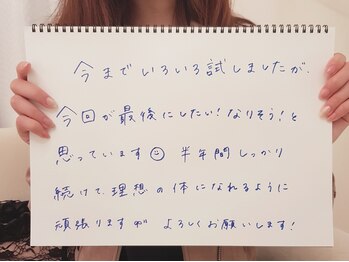 今までいろいろ試しましたが、
今回が最後にしたい!なりそう!と
思っています☺ 半年間しっかり
続けて、理想の体になれるように
頑張ります💪 よろしくお願いします!